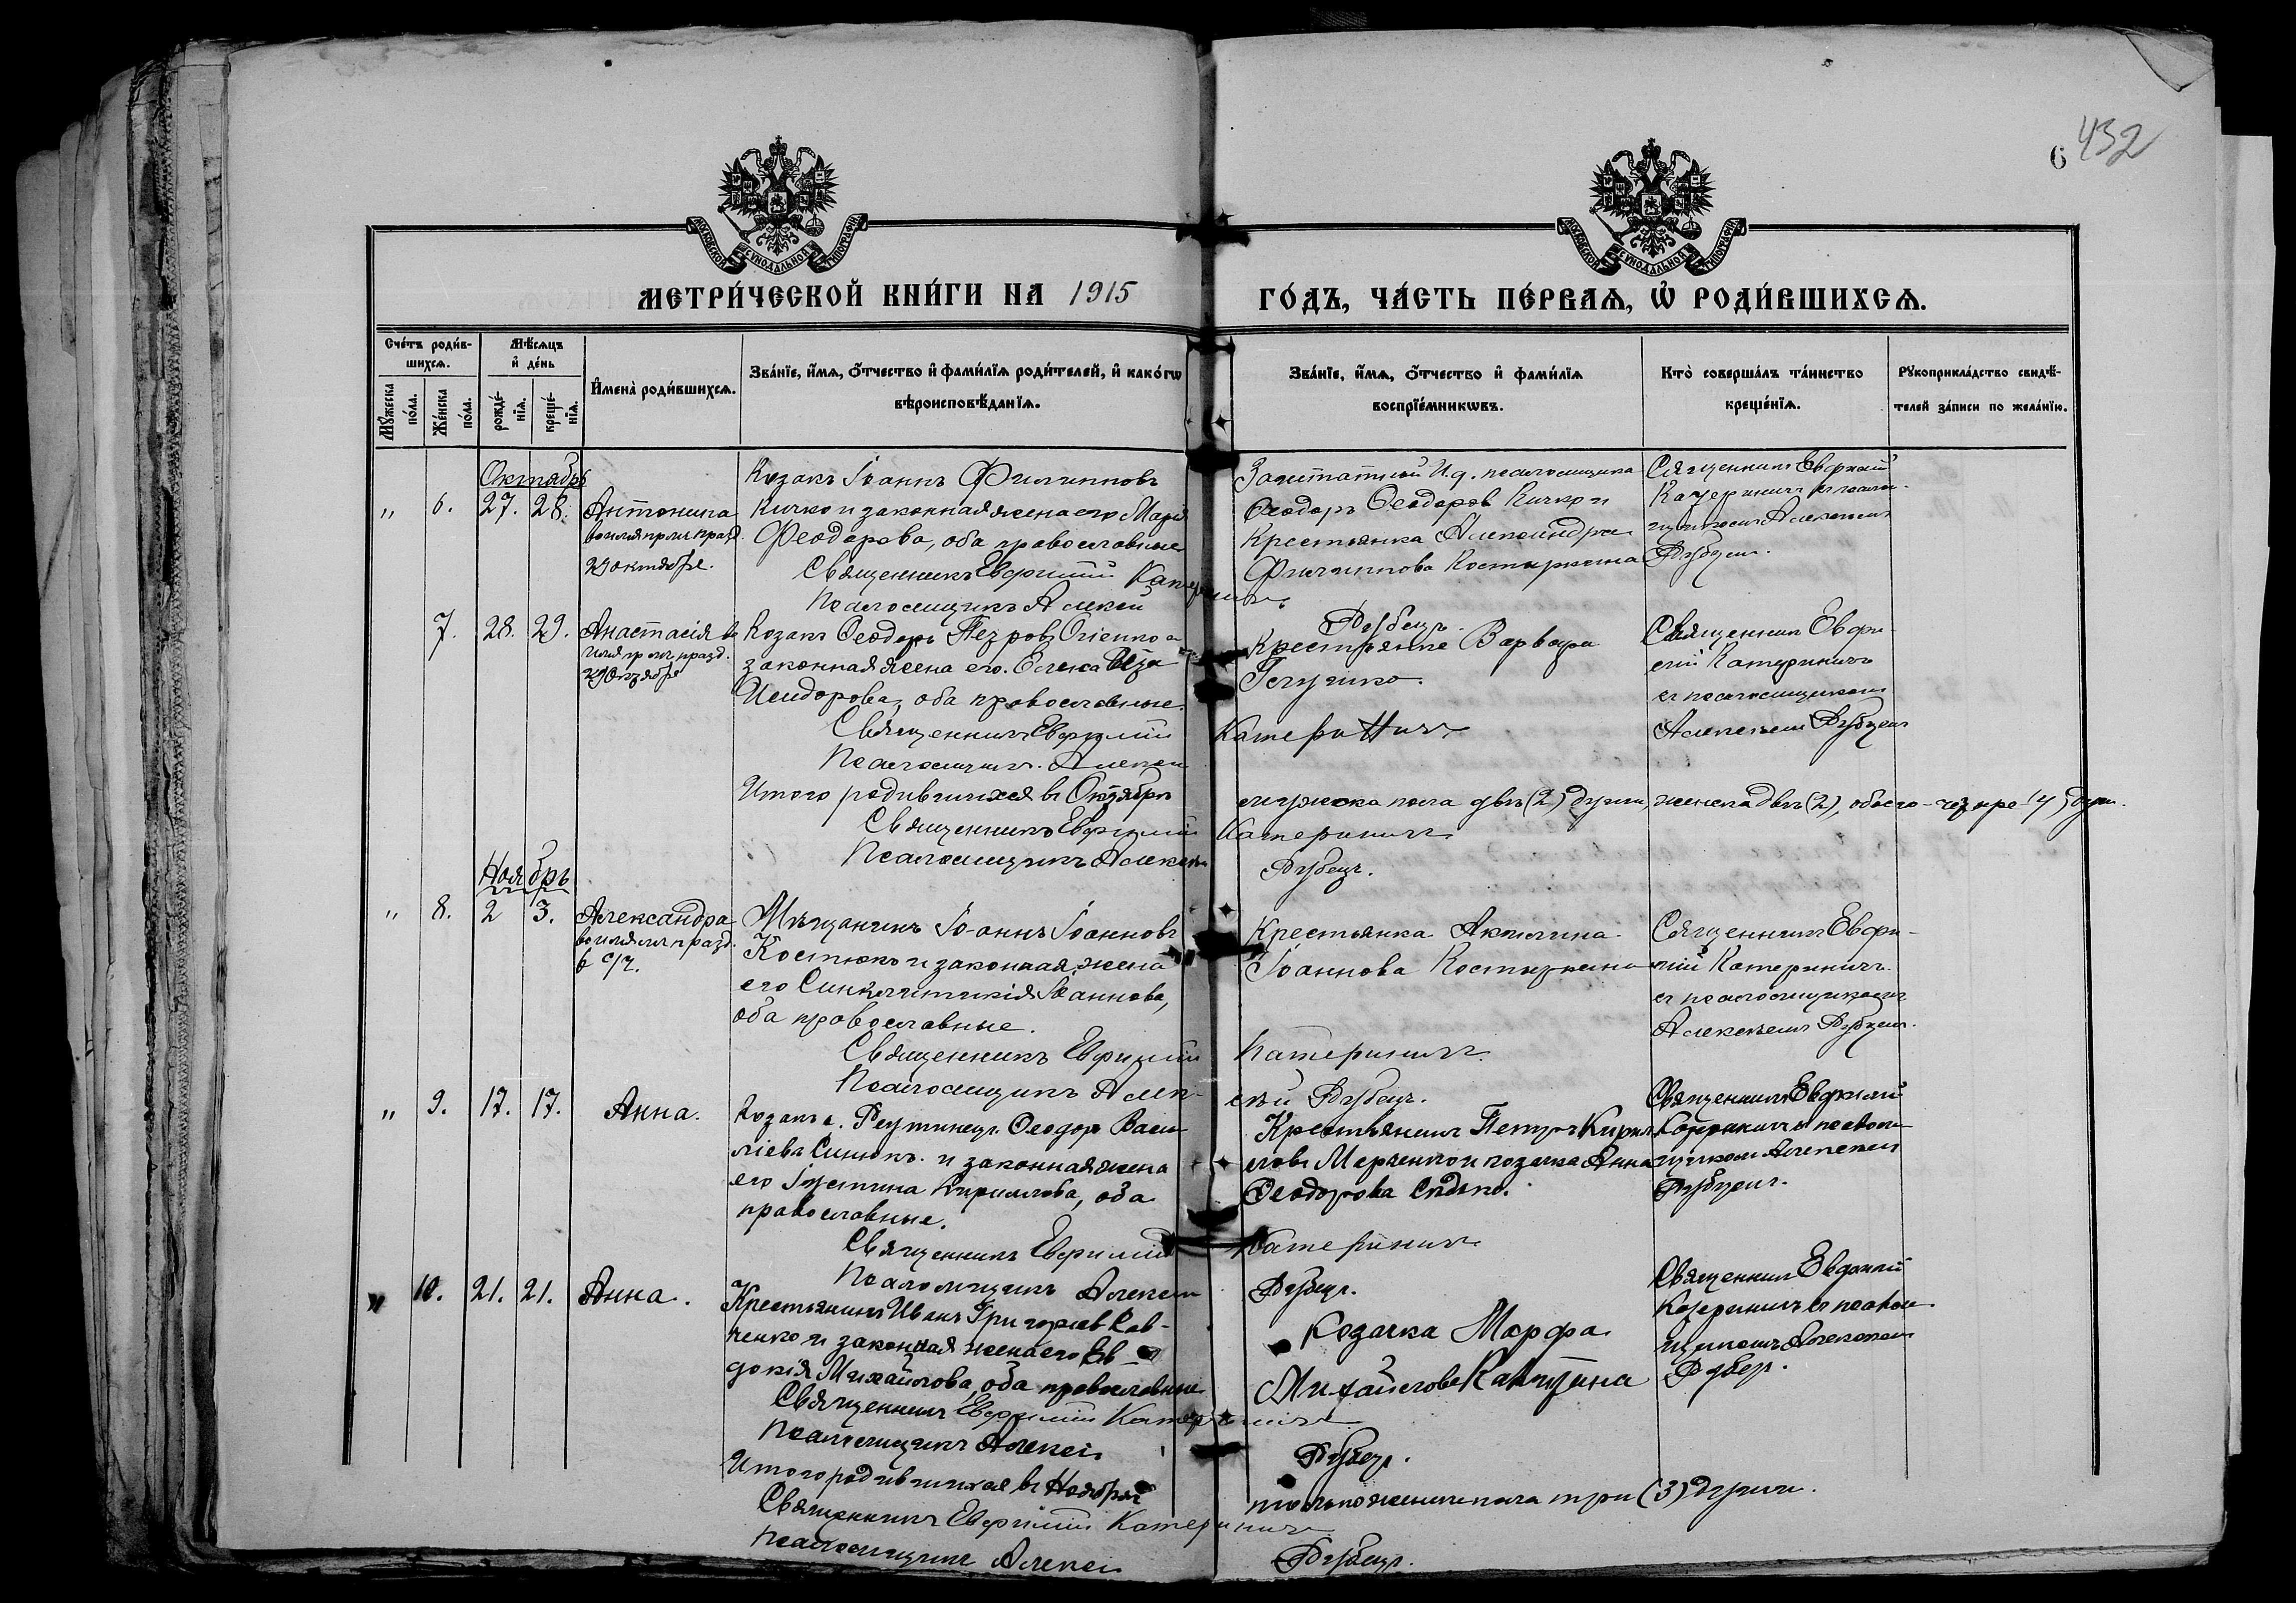 6 432
МОСКОВСКОЙ СѴНОДАЛЬНОЙ ТИПОГРАФІИ
МОСКОВСКОЙ СѴНОДАЛЬНОЙ ТИПОГРАФІИ
МЕТРИ́ЧЕСКОЙ КНИ́ГИ НА 1915
ГО́ДЪ, ЧА́СТЬ ПЕ́РВАѦ, Ѽ РОДИ́ВШИХСѦ.
Сче́тъ роди́в-
шихсѧ.
Мѹ́жеска по́ла.
Же́нска по́ла.
Мѣ́сѧцъ
и҆ де́нь
рожде́-
нїѧ.
креще́-
нїѧ.
И҆мена̀ роди́вшихсѧ.
Зва́нїе, и҆́мѧ, ѻ҆́тчество и҆ фами́лїѧ роди́телей, и҆ како́гѡ
вѣроисповѣ́данїѧ.
Зва́нїе, и҆́мѧ, ѻ҆́тчество и҆ фами́лїѧ
воспрїе́мникѡвъ.
Кто̀ соверша́лъ та́инство
креще́нїѧ.
Рѹкоприкла́дство свидѣ́-
телей за́писи по жела́нїю.
Октябрь
" 6. 27. 28. Антонина
29 октября.
Козакъ Іоаннъ Филипповъ
Кичко и законная жена его Марія
Феодорова, оба православные
Священникъ Евфимій Катериничъ
Псаломщикъ Алексей
Дубецъ.
Заштатный И.д. псаломщика
Ѳеодоръ Ѳеодоровъ Кичко и
Крестьянка Александра
Филиппова
Священникъ Евфимій
Катериничъ съ псалом-
щикомъ Алексеемъ
Дубцемъ.
7. 28. 29. Анастасія
29 Октября
Козакъ Ѳеодоръ Петровъ
законная жена его Елена
Исидорова, оба православные.
Священникъ Евфимій Катериничъ
Псаломщикъ Алексей
Крестьянка Варвара
Священникъ Евфи-
мій Катериничъ
съ псаломщикомъ
Алексеемъ Дубцемъ
Итого родившихся въ Октябрѣ мужеска пола двѣ (2) души, женска двѣ (2), обоего - четыре (4) души.
Священникъ Евфимій Катериничъ
Псаломщикъ Алексѣй Дубецъ.
Ноябрь
" 8. 2 3. Александра
Мѣщанинъ Іоаннъ Іоанновъ
Костюкъ и законная жена
его Синклитикія Іоаннова,
оба православные.
Священникъ Евфимій Катериничъ
Псаломщикъ Алек-
сѣй Дубецъ.
Крестьянка Акилина
Іоаннова
Священникъ Евфи-
мій Катериничъ
съ псаломщикомъ
Алексеемъ Дубцемъ.
" 9. 17. 17. Анна.
Козакъ с. Реутинецъ Ѳеодоръ Васи-
ліевъ Синюкъ и законная жена
его Іустина Кириллова, оба
православные.
Священникъ Евфимій Катериничъ
Псаломщикъ Алексей Дубецъ.
Крестьянинъ Петръ Кирил-
ловъ и козачка Анна
Ѳеодорова
Священникъ Евфимій
Катериничъ съ псалом-
щикомъ Алексеемъ
Дубцемъ.
" 10. 21. 21. Анна.
Крестьянинъ Иванъ Григорьевъ Сав-
ченко и законная жена его Ев-
докія Михайлова, оба православные
Священникъ Евфимій Катериничъ
Псаломщикъ Алексей
Дубецъ.
Козачка Марфа
Михайлова
Священникъ Евфимій
Катериничъ съ псалом-
щикомъ Алексеемъ
Дубцемъ.
Итого родившихся въ Ноябрѣ только женска пола три (3) души.
Священникъ Евфимій Катериничъ
Псаломщикъ Алексей Дубецъ.